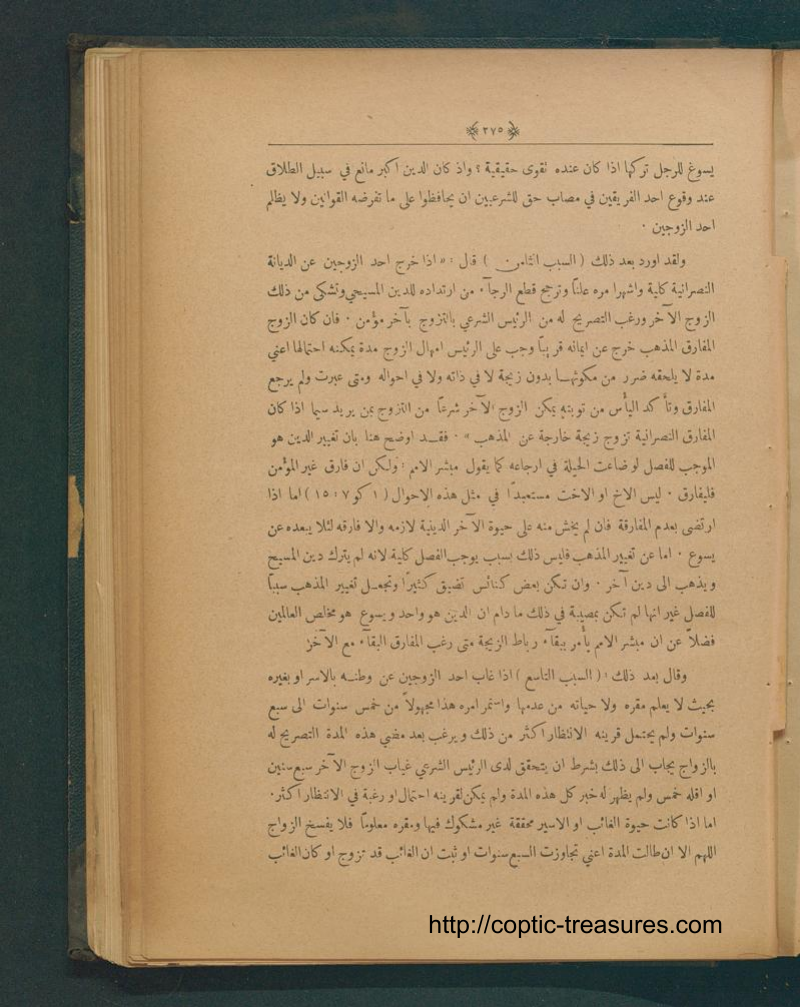 ﴿ ٢٧٥ ﴾
يسوغ للرجل تركها اذا كان عنده تقوى حقيقية ؟ واذ كان الدين اكبر مانع في سبيل الطلاق
عند وقوع احد الفريقين في مصاب حق للشرعيين ان يحافظوا على ما تفرضه القوانين ولا يظلم
احد الزوجين ٠
ولقد اورد بعد ذلك ( السبب الثامن ) قال : « اذا خرج احد الزوجين عن الديانة
النصرانية كلية واشهر امره علناً وترجح قطع الرجآء من ارتداده للدين المسيحي وتشكى من ذلك
الزوج الآخر ورغب التصريح له من الرئيس الشرعي بالتزوج بآخر مؤمن ٠ فان كان الزوج
المفارق المذهب خرج عن ايمانه قريباً وجب على الرئيس امهال الزوج مدة يمكنه احتمالها اعني
مدة لا يلحقه ضرر من مكوثهـا بدون زيجة لا في ذاته ولا في احواله ومتى عبرت ولم يرجع
المفارق وتأكد اليأس من توبته يمكن الزوج الآخر شرعاً من التزوج بمن يريد سيما اذا كان
المفارق النصرانية تزوج زيجة خارجة عن المذهب » ٠ فقـد اوضح هنا بان تغيير الدين هو
الموجب للفصل لو ضاعت الحيلة في ارجاعه كما يقول مبشر الامم : ولكن ان فارق غير المؤمن
فليفارق ٠ ليس الاخ او الاخت مستعبداً في مثل هذه الاحوال ( ١ كو ٧ : ١٥ ) اما اذا
ارتضى بعدم المفارقة فان لم يخش منه على حيوة الآخر الدينية لازمه والا فارقه لئلا يبعده عن
يسوع ٠ اما عن تغيير المذهب فليس ذلك بسبب يوجب الفصل كلية لانه لم يترك دين المسيح
ويذهب الى دين آخر ٠ وان تكن بعض كنائس تضيق كثيراً وتجعـل تغيير المذهب سبباً
للفصل غير انها لم تكن بمصيبة في ذلك ما دام ان الدين هو واحد ويسوع هو مخلص العالمين
فضلاً عن ان مبشر الامم يأمر ببقآء رباط الزيجة متى رغب المفارق البقآء مع الآخر
وقال بعد ذلك : ( السبب التاسع ) اذا غاب احد الزوجين عن وطنـه بالاسر او بغيره
بحيث لا يعلم مقره ولا حياته من عدمها واستمر امره هذا مجهولاً من خمس سنوات الى سبع
سنوات ولم يحتمل قرينه الانتظار اكثر من ذلك ويرغب بعد مضي هذه المدة التصريح له
بالزواج يجاب الى ذلك بشرط ان يتحقق لدى الرئيس الشرعي غياب الزوج الآخر سبع سنين
او اقله خمس ولم يظهر له خبر كل هذه المدة ولم يمكن لقرينه احتمال او رغبة في الانتظار اكثر ٠
اما اذا كانت حيوة الغائب او الاسير محققة غير مشكوك فيها ومقره معلوماً فلا يفسخ الزواج
اللهم الا ان طالت المدة اعني تجاوزت السبع سنوات او ثبت ان الغائب قد تزوج او كان الغائب
http://coptic-treasures.com